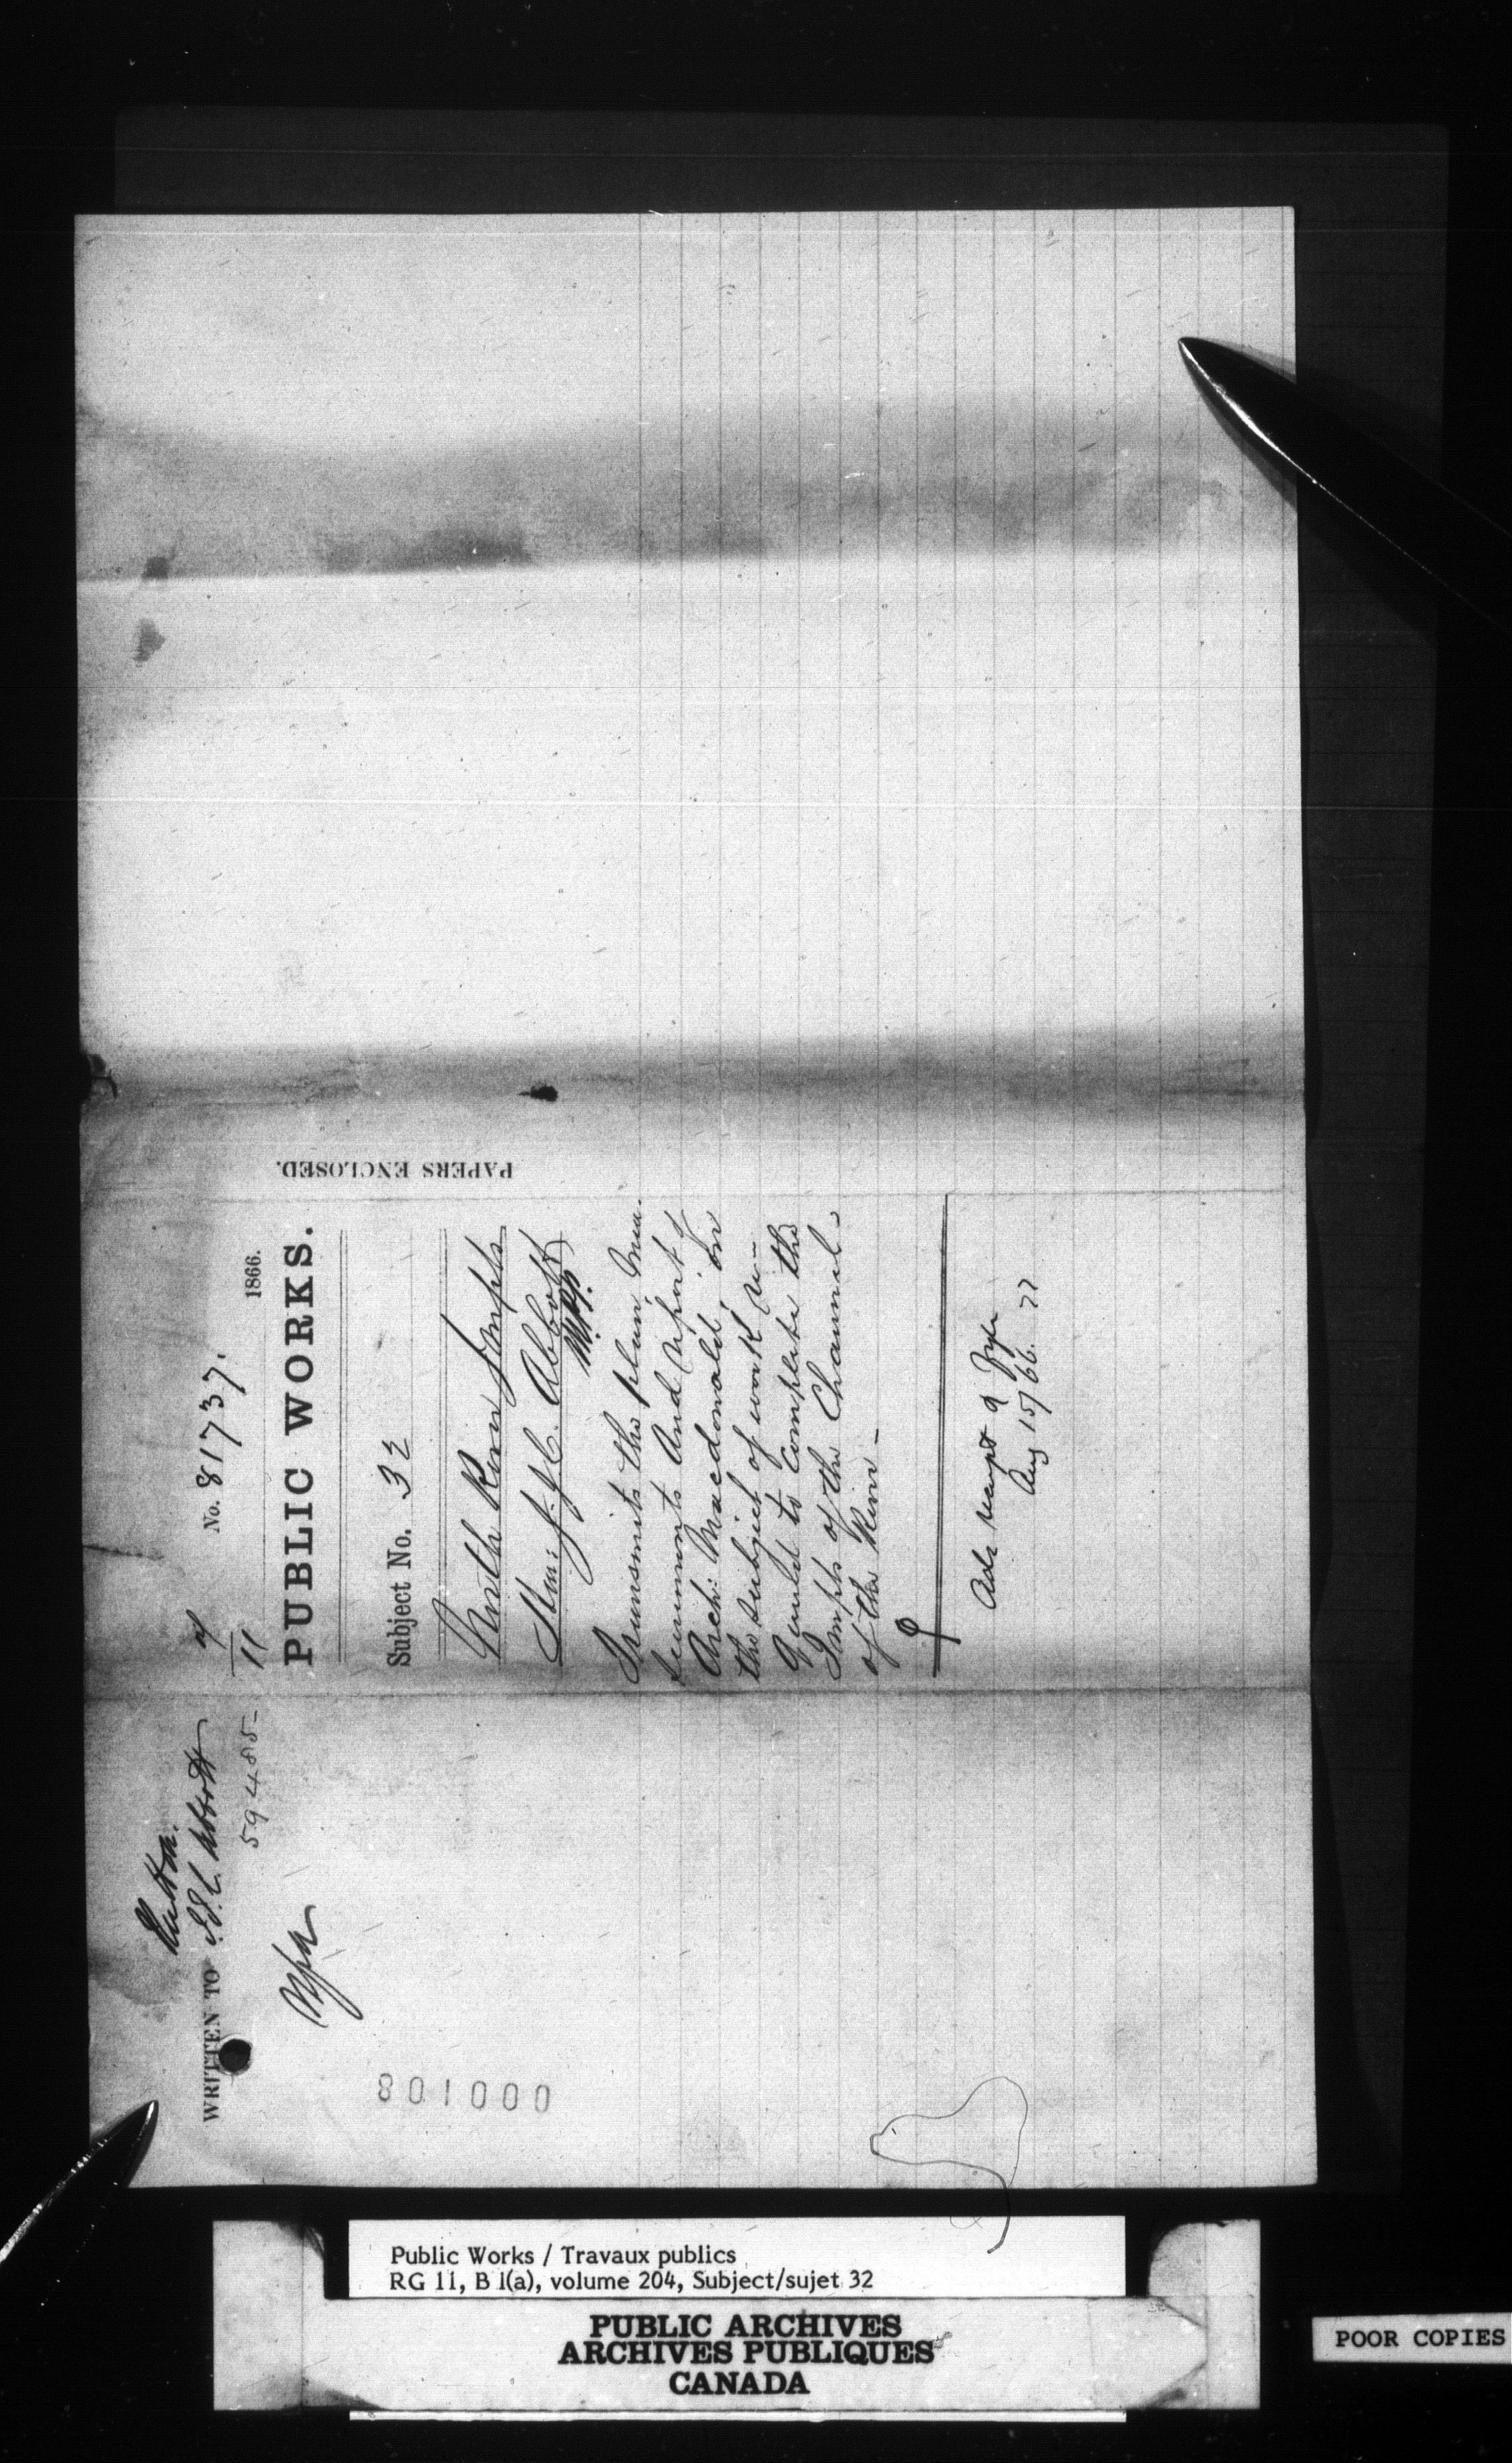 No. 81737.
1866.
PUBLIC WORKS.
Subject No. 32
North River Impts
Hon: J. J. C. Abbott
M.P.P.
Transmits the plan, Mea-
surements and report of
Arch: Macdonald, on
the subject of work re-
quired to complete the
Impts of the Channel
of the River -
Ack receipt
Aug 15/66.
11
PAPERS ENCLOSED.
WRITTEN TO J.J.C. Abbott
59485
000108
Public Works / Travaux publics
RG 11, B 1(a), volume 204, Subject/sujet 32
PUBLIC ARCHIVES
ARCHIVES PUBLIQUES
CANADA
POOR COPIES